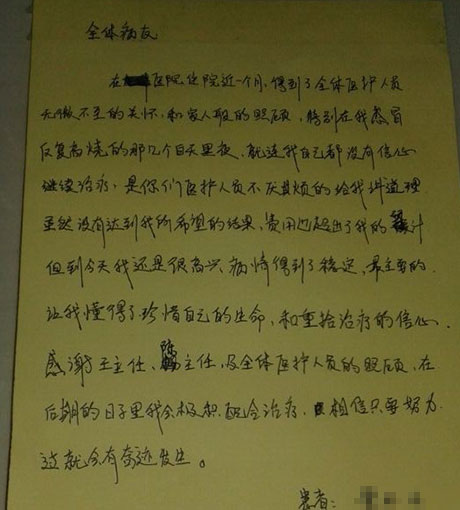 全体病友
在医院住院近一个月,得到了全体医护人员
无微不至的关怀,和家人般的照顾,特别在我感冒
反复高烧的那几个白天黑夜,就连我自己都没有信心
继续治疗,是你们医护人员不厌其烦的给我讲道理
虽然没有达到我所希望的结果,费用也超出了我的预计
但到今天我还是很高兴,病情得到了稳定,最主要的.
让我懂得了珍惜自己的生命,和重拾治疗的信心.
感谢王主任、陈主任,及全体医护人员的照顾,在
后期的日子里我会积极配合治疗,相信只要努力
过就会有奇迹发生。
患者: